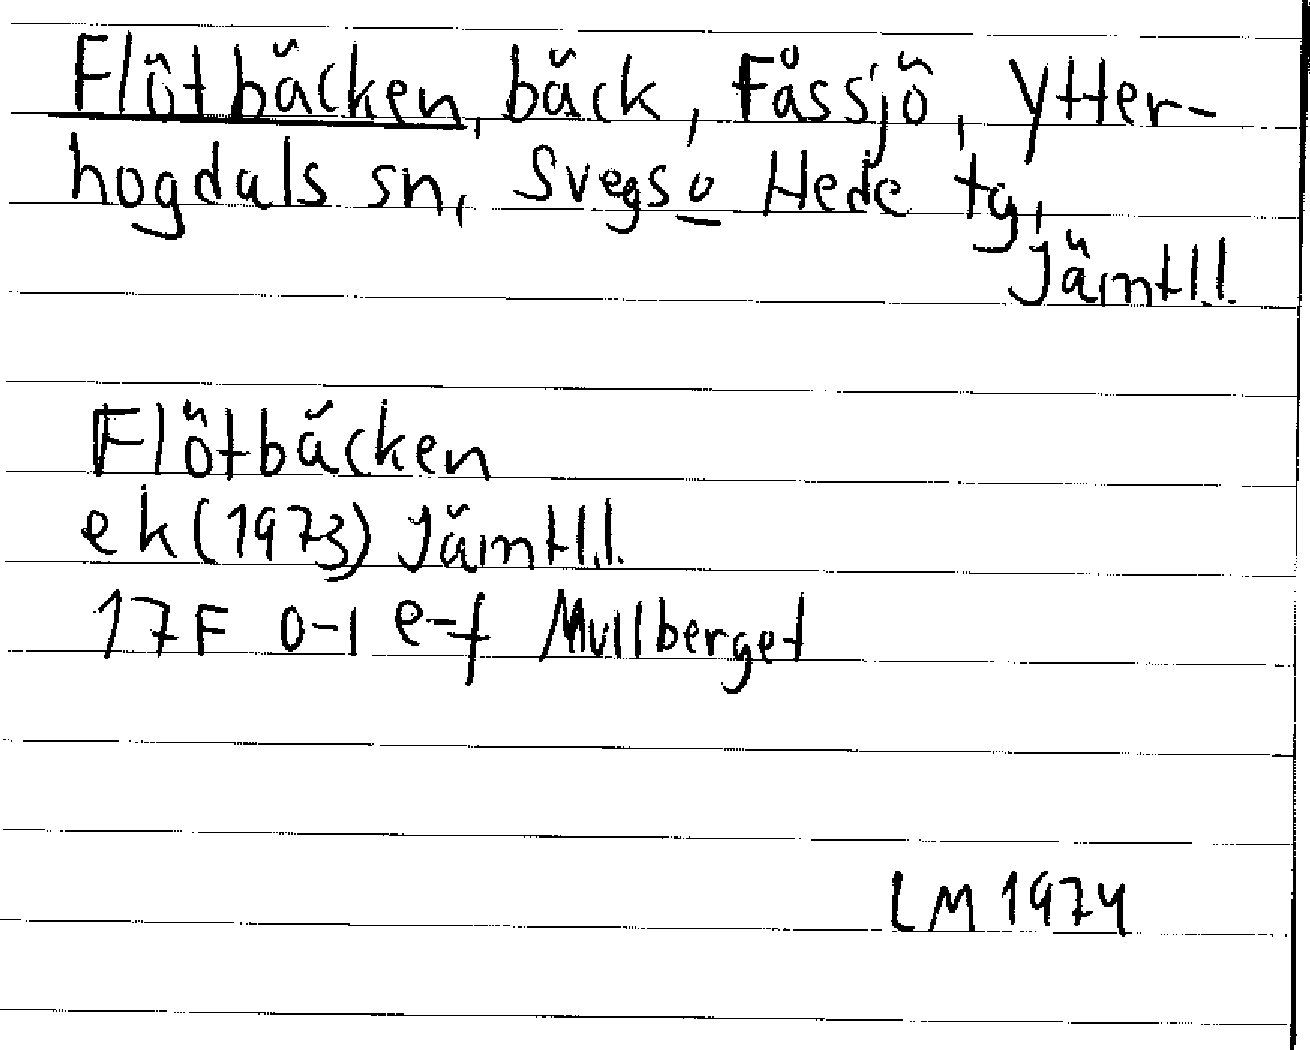 Flötbäcken, bäck, Fåssjö, Ytter-
hogdals sn, Svegs o Hede tg,
Jämtl.l.
Flötbäcken
ek (1973) Jämtl.l.
17F 0-1 e-f Mullberget
LM 1974